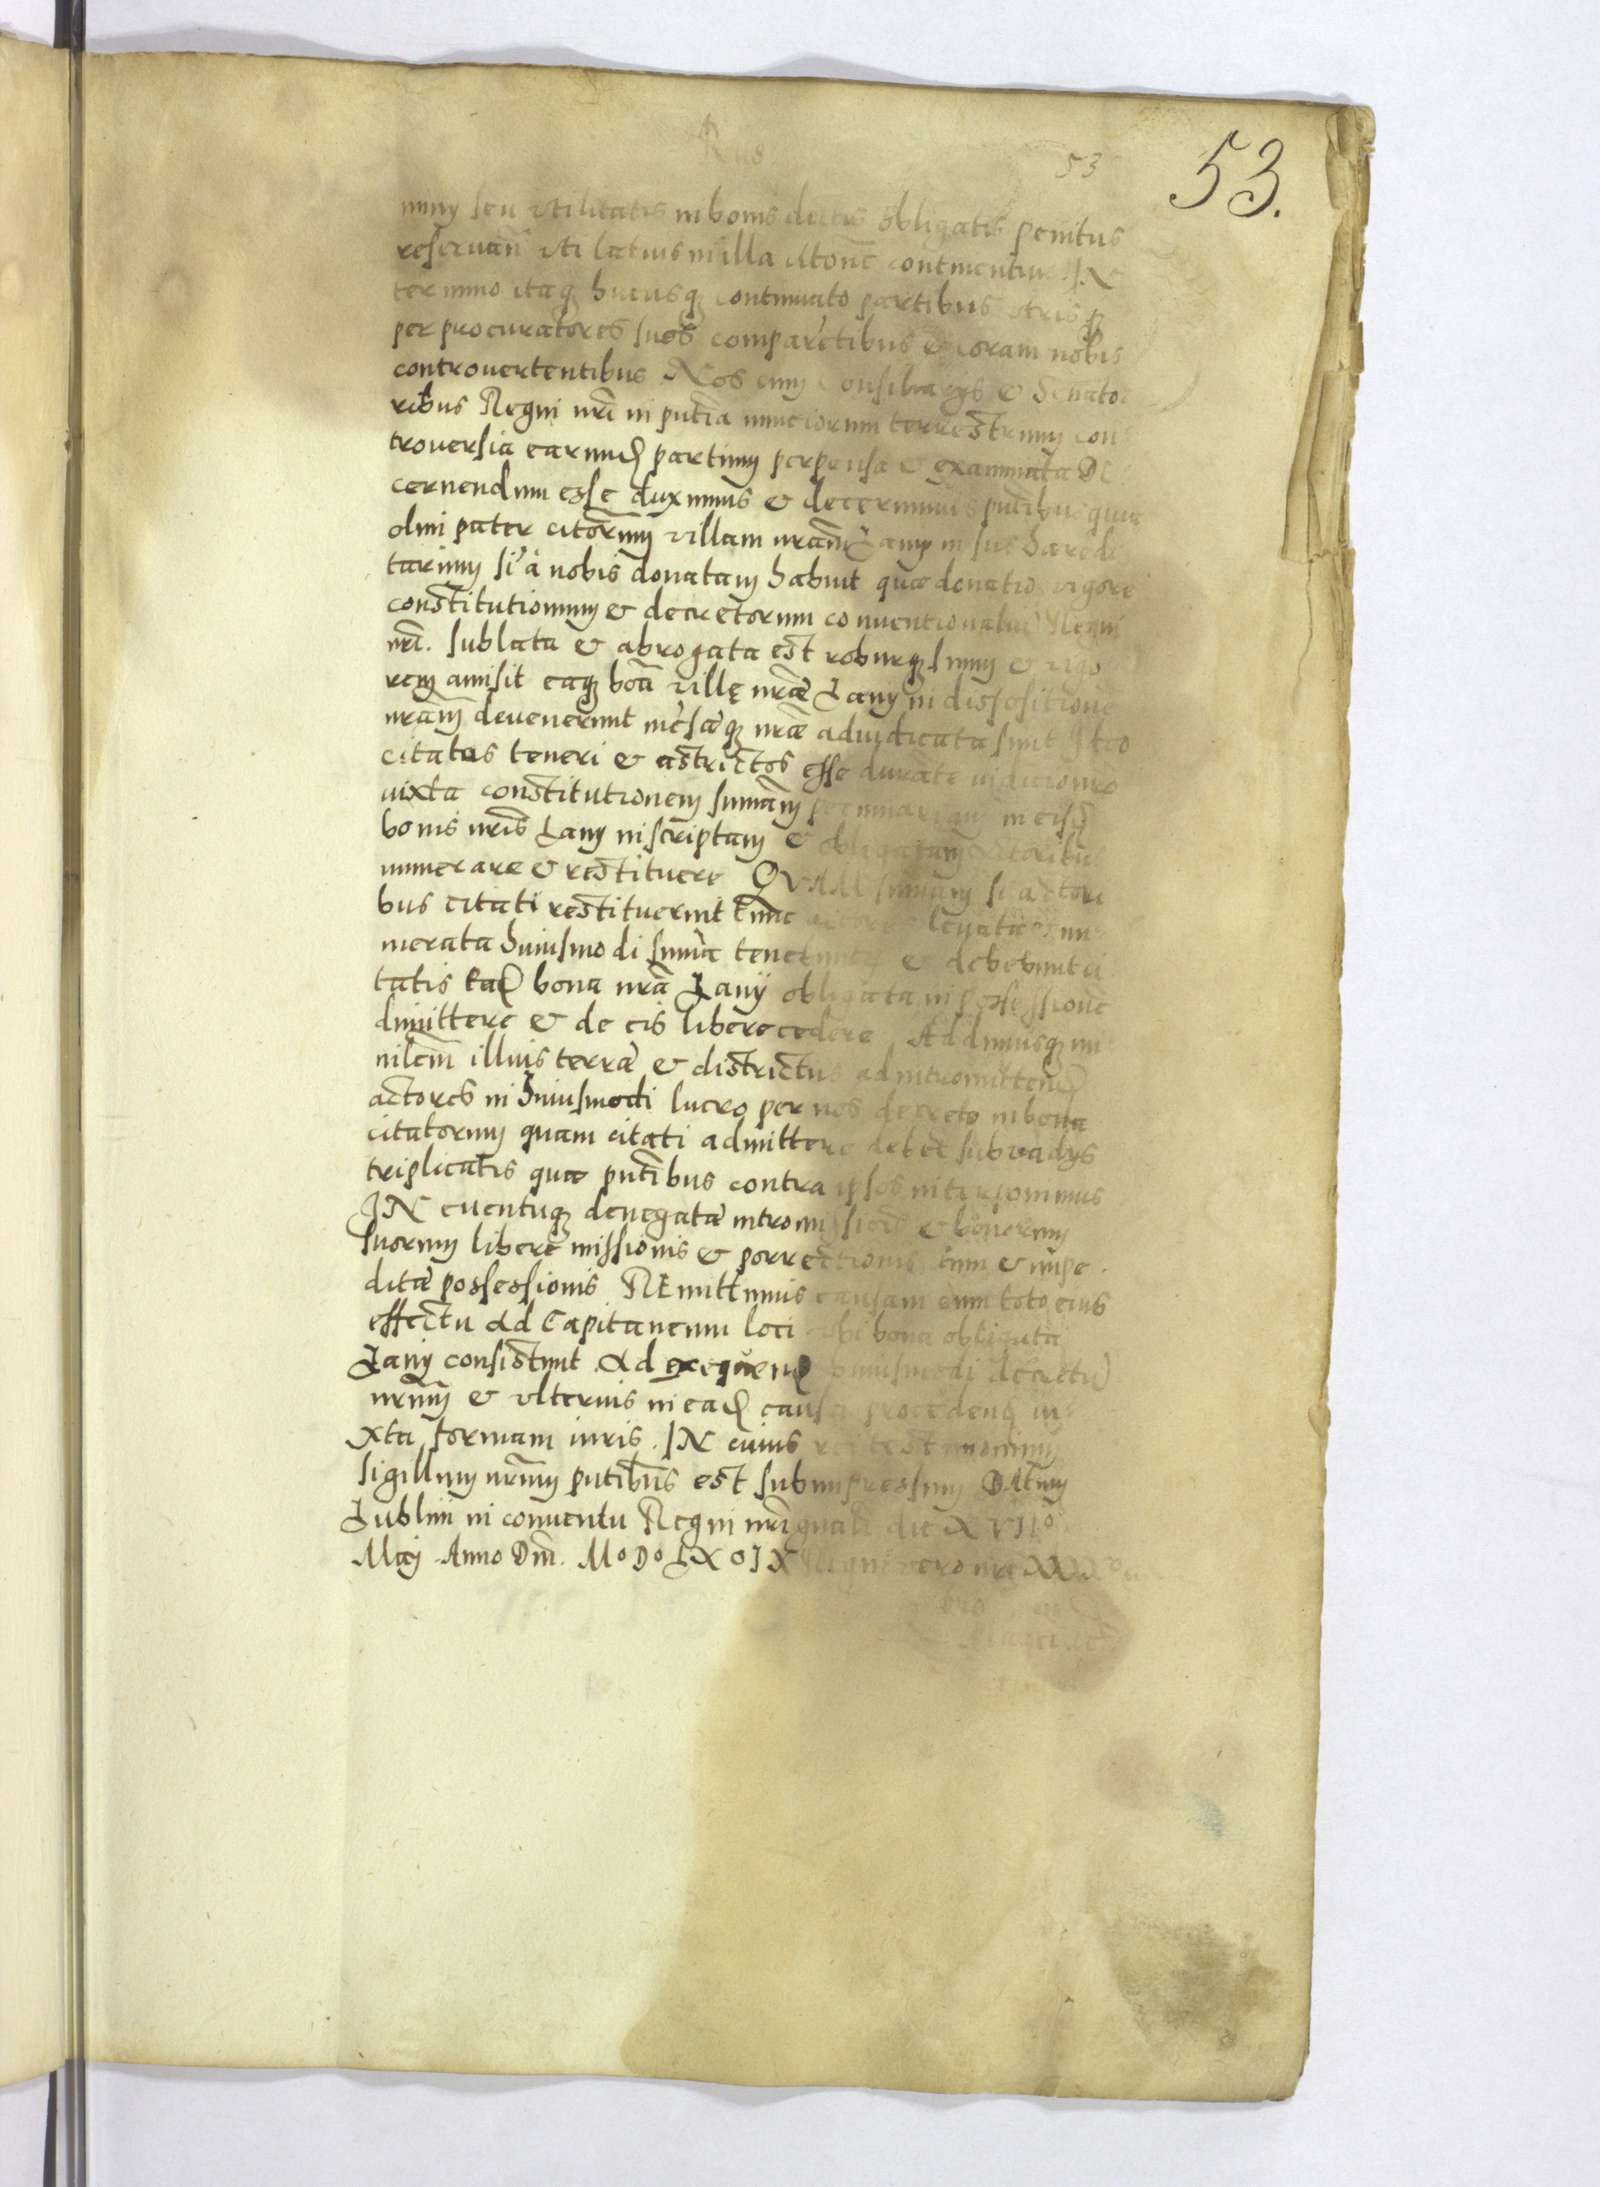 Rus
53
53.
minij seu vtilitatis in bonis dictis obligatis penitus
reseruan̄ vti latius in illa cito͞ne continentur. IN
termino itaq; hucusq; continuato partibus vtrisq;
per procuratores suos compare͞tibus & coram nobis
controuertentibus Nos cum Consiliarijs & Senato
ribus Regni nr͞i in pn͞tia nunciorum terrestrium con
trouersia earund partium perpensa & examinata De
cernendum esse duximus & decernimus pn͞tibus quia
olim pater cito͞rum villam nr͞am Lany in ius haeredi
tarium si͞ à nobis donatam habuit quae donatio vigore
constitutionum & decretorum conuentionalium Regni
nr͞i. sublata & abrogata est roburq; suum & vigo
rem amisit eaq; bo͞a villę nr͞ae Lany in dispositione
nr͞am deuenerunt me͞saeq; nr͞ae adiudicata sunt Ideo
citatos teneri & astrictos esse
iuxta constitutionem summam in eisd
bonis nr͞is Lany inscriptam & obligatam actoribus
numerare & restituere QVAM summam si actori
bus citati restituerint tunc actores leuata & nu
merata huiusmodi summa tenebuntur & debebunt ci
tatis ead bona nr͞a Lany obligata in possessione
dimittere & de eis libere cedere Addimusq; mi
nile͞m illius terrae & districtus ad intromittend
actores in huiusmodi lucro per nos decreto in bona
citatorum quam citati admittere debe͞t sub vadijs
triplicatis quae pn͞tibus contra ipsos interponimus
IN euentuq; denegatae intromissionis & bonorum
suorum liberè missionis & porrectionis tum & impe
ditae possessionis REmittimus causam cum toto eius
effectu ad Capitaneum loci vbi bona obligata
Lany consistunt ad exequend huiusmodi decretu͞
nr͞um & vlterius in ead causa procedend iu
xta formam iuris. IN cuius rei testimonium
sigillum nr͞um pn͞tibus est subimpressum DAtum
Lublini in conuentu Regni nr͞i gn͞ali die XVII°
Maij Anno Dm͞. M° D° LX° IX Regni vero nr͞i